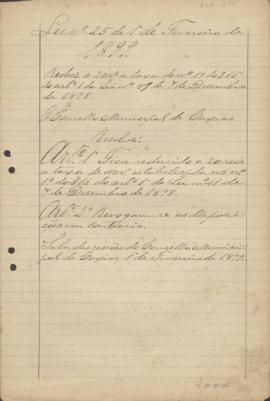 Lei nº 25 de 1º de Fevereiro de
1899.
Reduz a 20 rs a taxa do nº 1º do § 15
do artº 1 da Lei nº de 7 de Dezembro
de 1898.
O Conselho Municipal de Caxias
Resolve:
Artº 1º Fica reduzido a 20 reis
a taxa de estabelecida no nº
1º do § 15 do artº 1º da Lei nº de
7 de Dezembro de 1898.
Artº 2º Revogam-se as disposi-
ções em contrario.
Sala das sessões do Conselho Munici-
pal de Caxias, 1º de Fevereiro de 1899.